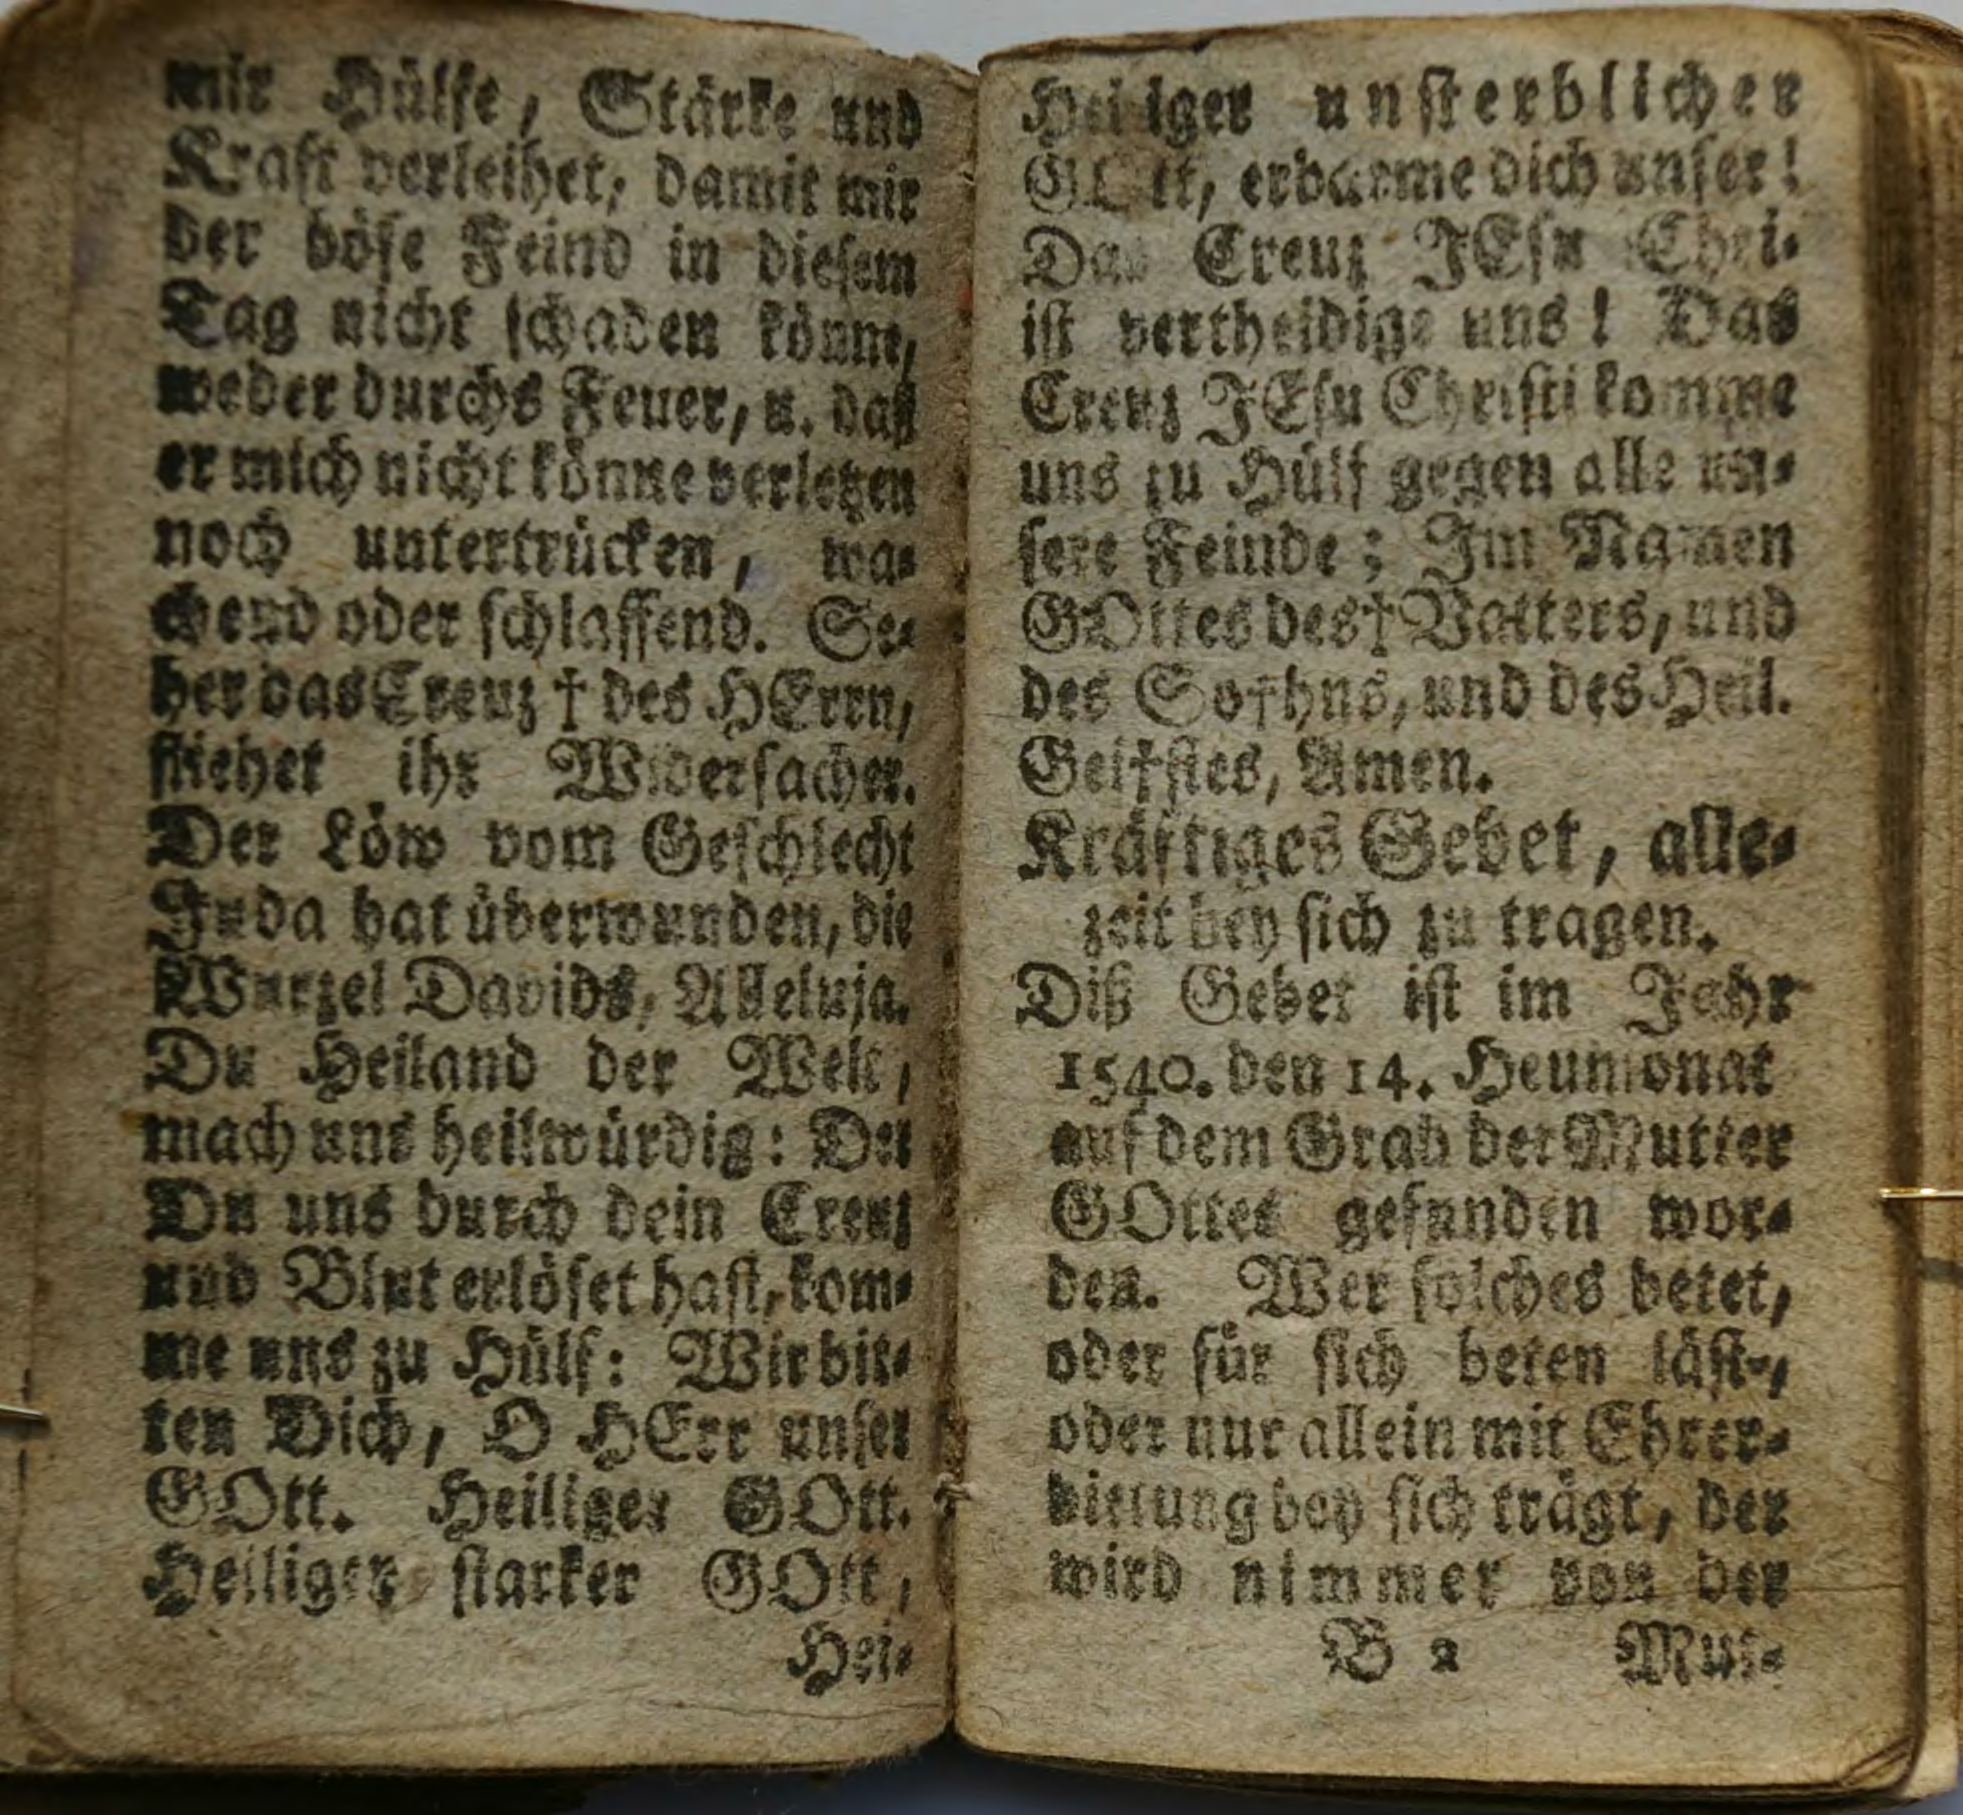 mir Hülfe, Stärke und
Kraft verleihet, damit mir
der böse Feind in diesem
Tag nicht schaden könne,
weder durchs Feuer, u. daß
er mich nicht könne verletzen
noch untertrücken, wa-
chend oder schlaffend. Se-
het das Creuz † des HErrn,
fliehet ihr Widersacher.
Der Löw vom Geschlecht
Juda hat überwunden, die
Wurzel Davids, Alleluja.
Du Heiland der Welt,
mach uns heilwürdig: Der
Du uns durch dein Creuz
und Blut erlöset hast, kom-
me uns zu Hülf: Wir bit-
ten Dich, O HErr unser
GOtt. Heiliger GOtt.
Heiliger starker GOtt,
Hei-
Heiliger unsterblicher
GOtt, erbarme dich unser!
Das Creuz JEsu Chri-
ist vertheidige uns! Das
Creuz JEsu Christi komme
uns zu Hülf gegen alle un-
sere Feinde; Im Namen
GOttes des † Vatters, und
des So†hns, und des Heil.
Gei†stes, Amen.
Kräftiges Gebet, alle-
zeit bey sich zu tragen.
Diß Gebet ist im Jahr
1540. den 14. Heumonat
auf dem Grab der Mutter
GOttes gefunden wor-
den. Wer solches betet,
oder für sich beten läst,
oder nur allein mit Ehrer-
bietung bey sich trägt, der
wird nimmer von der
B 2 Mut-